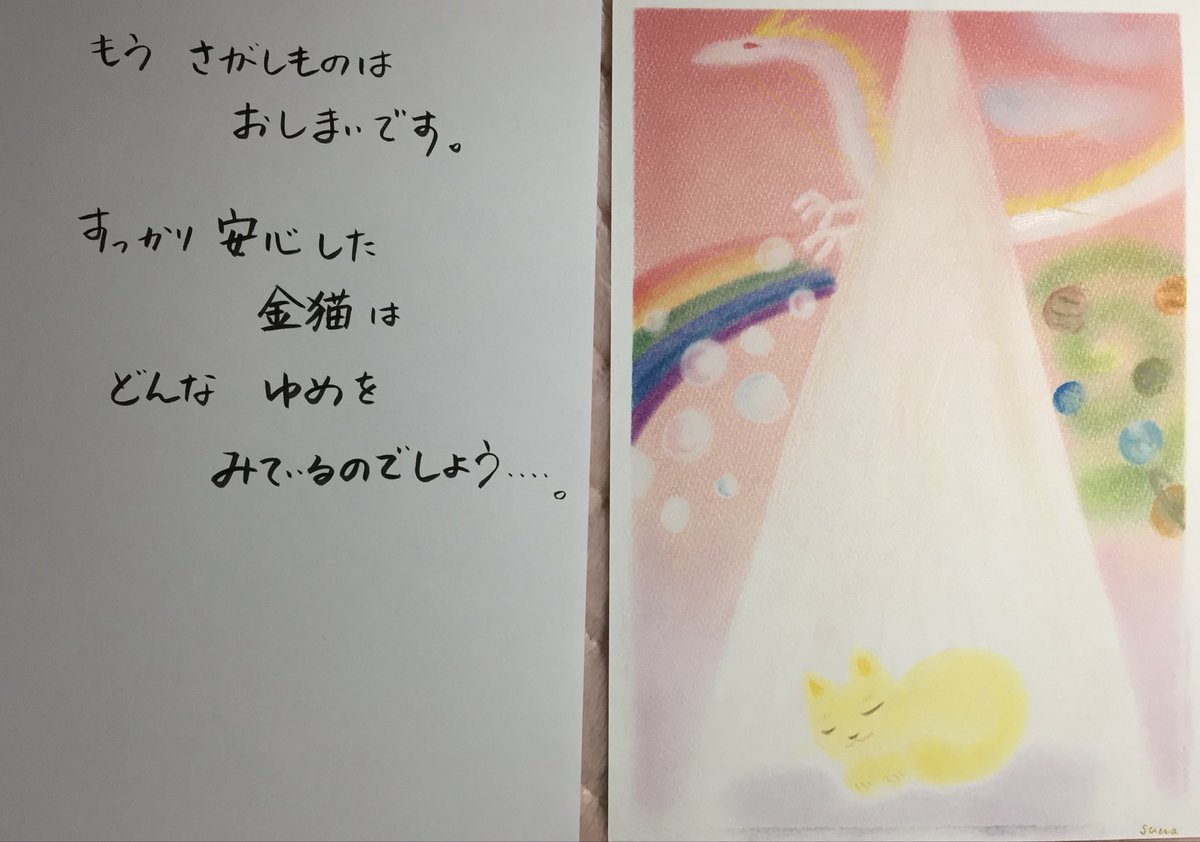 もう さがしものは
おしまいです。
すっかり 安心した
金猫は
どんな ゆめを
みているのでしょう‥‥。